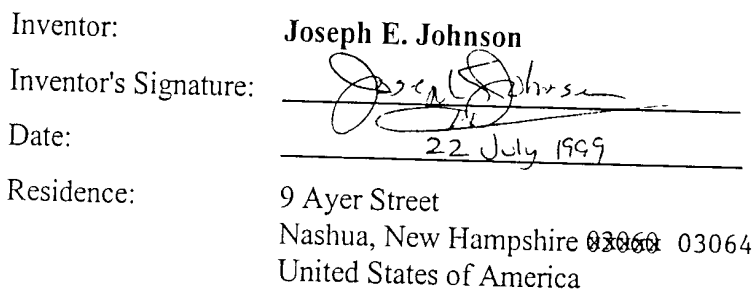 Inventor: Joseph E. Johnson
Inventor's Signature: Joseph Johnson
Date: 22 July 1999
Residence: 9 Ayer Street
Nashua, New Hampshire 03060 03064
United States of America